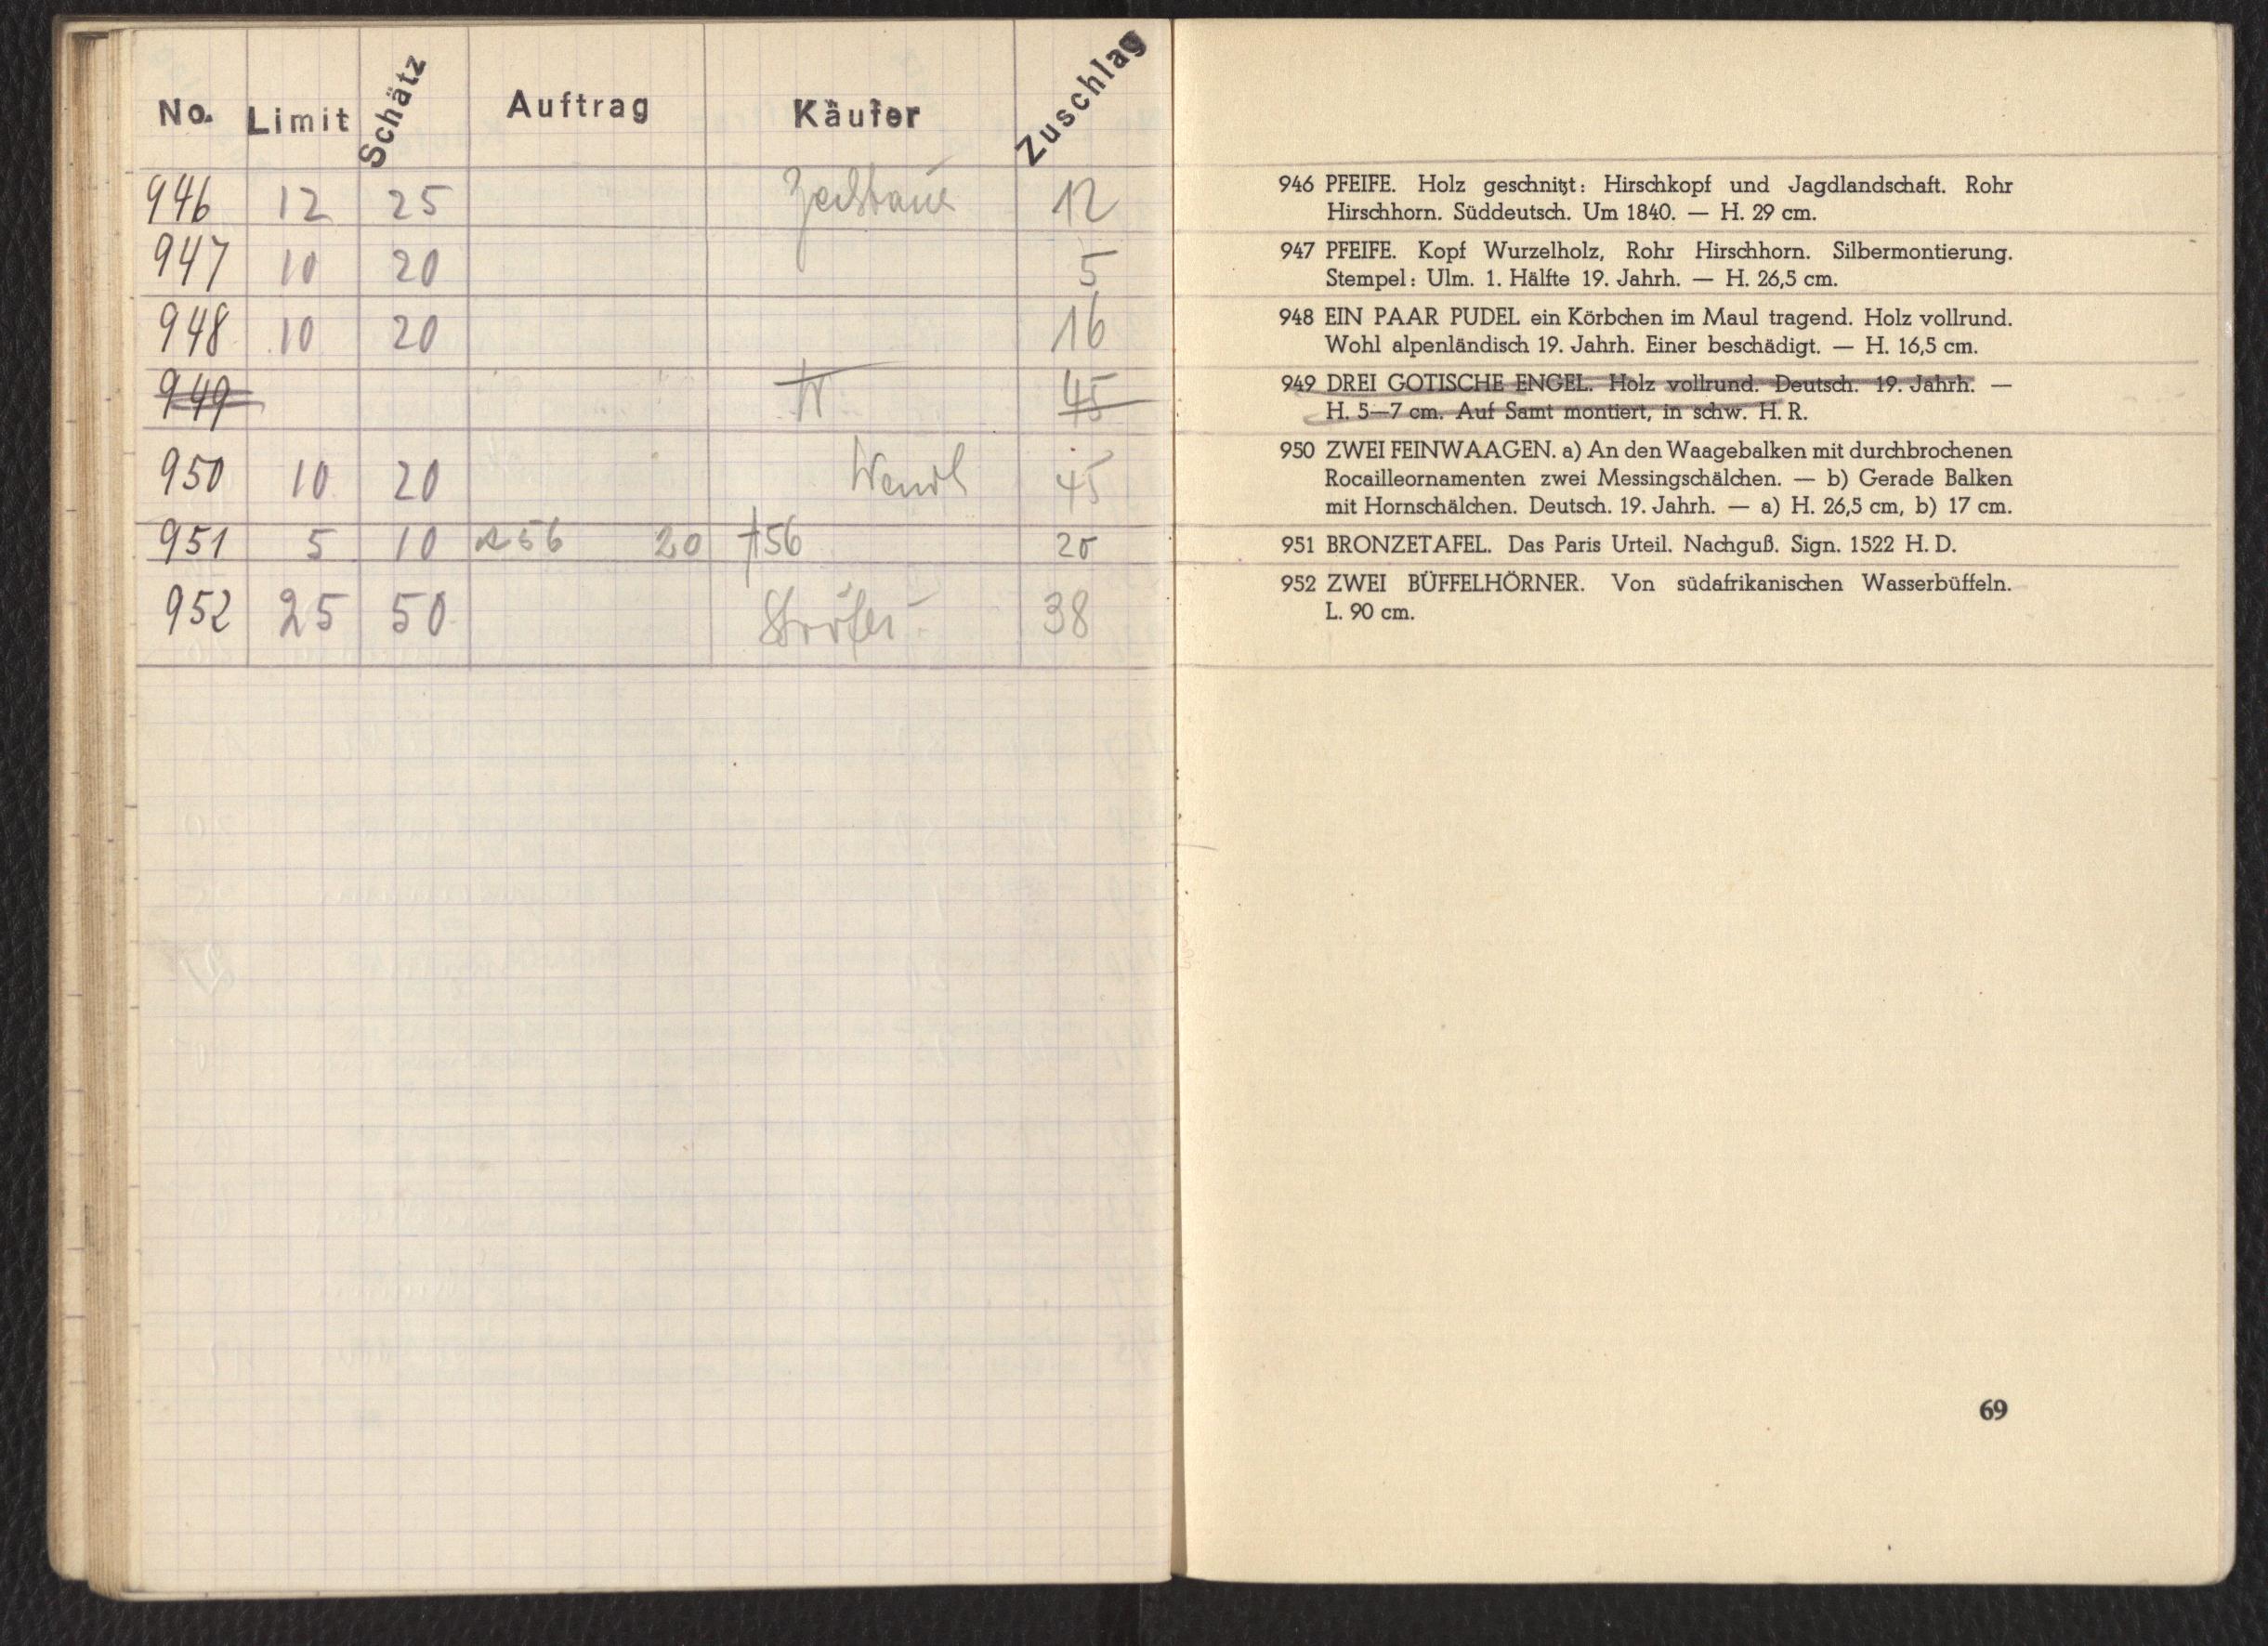 No. Limit Schätz Auftrag Käufer Zuschlag
946 12 25 12
947 10 20 5
948 10 20 16
949 W 45
950 10 20 Wendl 45
951 5 10 56 20 56 20
952 25 50 38
946 PFEIFE. Holz geschnitzt: Hirschkopf und Jagdlandschaft. Rohr
Hirschhorn. Süddeutsch. Um 1840. — H. 29 cm.
947 PFEIFE. Kopf Wurzelholz, Rohr Hirschhorn. Silbermontierung.
Stempel: Ulm. 1. Hälfte 19. Jahrh. — H. 26,5 cm.
948 EIN PAAR PUDEL ein Körbchen im Maul tragend. Holz vollrund.
Wohl alpenländisch 19. Jahrh. Einer beschädigt. — H. 16,5 cm.
949 DREI GOTISCHE ENGEL. Holz vollrund. Deutsch. 19. Jahrh. —
H. 5—7 cm. Auf Samt montiert, in schw. H. R.
950 ZWEI FEINWAAGEN. a) An den Waagebalken mit durchbrochenen
Rocailleornamenten zwei Messingschälchen. — b) Gerade Balken
mit Hornschälchen. Deutsch. 19. Jahrh. — a) H. 26,5 cm, b) 17 cm.
951 BRONZETAFEL. Das Paris Urteil. Nachguß. Sign. 1522 H. D.
952 ZWEI BÜFFELHÖRNER. Von südafrikanischen Wasserbüffeln.
L. 90 cm.
69